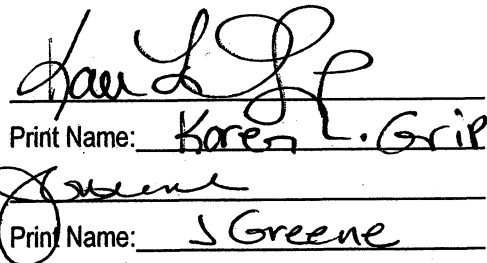 Print Name: Karen L. Grip
Print Name: J Greene